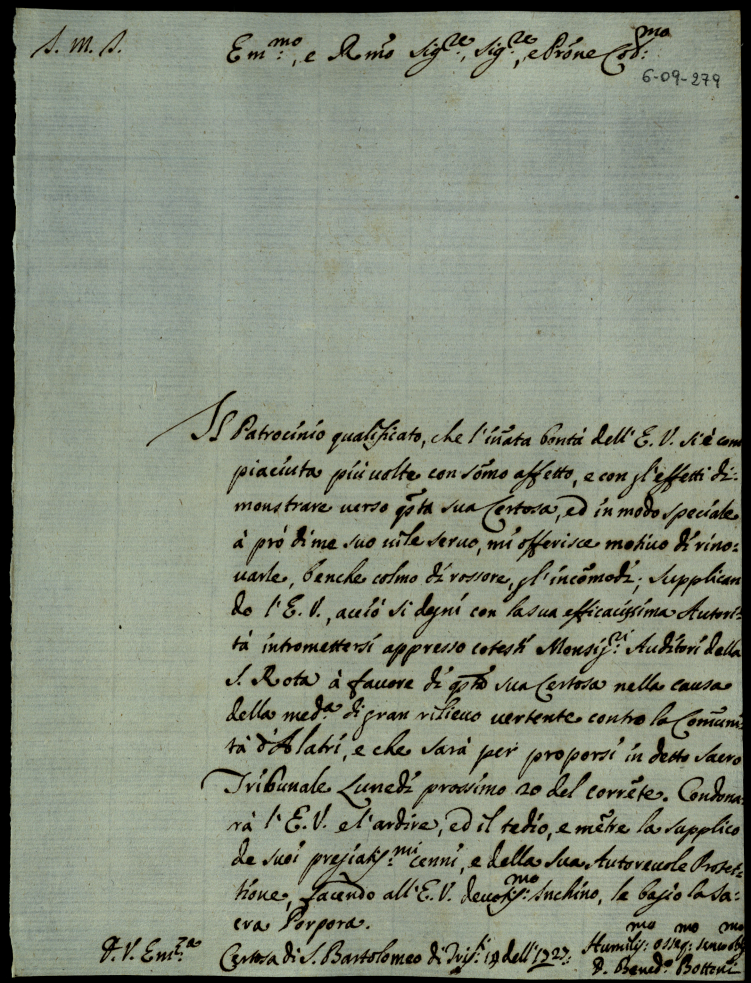 J. M. J.
Em^mo:, e R̃mo Sig^re:, Sig^re:, e Prõne Col:^mo
6-09-279
Il Patrocinio qualificato, che l'iñata bontà dell' E. V. si è com
piaciuta più volte con sõmo affetto, e con gl'effetti di=
monstrare verso q̃sta sua Certosa, ed in modo speciale
à prò di me suo vile servo, mi offerisce motivo di rino=
varle, benche colmo di rossore, gl'incõmodi; supplican
do l'E. V., acciò si degni con la sua efficacissima Autori=
tà intromettersi appresso cotesti Monsig:^ri Auditori della
S. Rota à favore di q̃sta sua Certosa nella causa
della med:^a di gran rilievo vertente contro la Comũni
tà d'Alatri, e che sarà per proporsi in detto Sacro
Tribunale Lunedì prossimo 20 del corrẽte. Condona=
rà l'E. V. e l'ardire, ed il tedio, e mẽtre la supplico
de suoi pregiatis:^mi cenni, e della sua Autorevole Protet=
tione, facendo all'E. V. devotis:^mo Inchino, le bagio la Sa=
cra Porpora.
D. V. Em:^za
Certosa di S. Bartolomeo di Tris:^ti dell' 1727:
Humilis:^mo osseq:^mo servo obl^mo
D. Bened:^o Bottoni